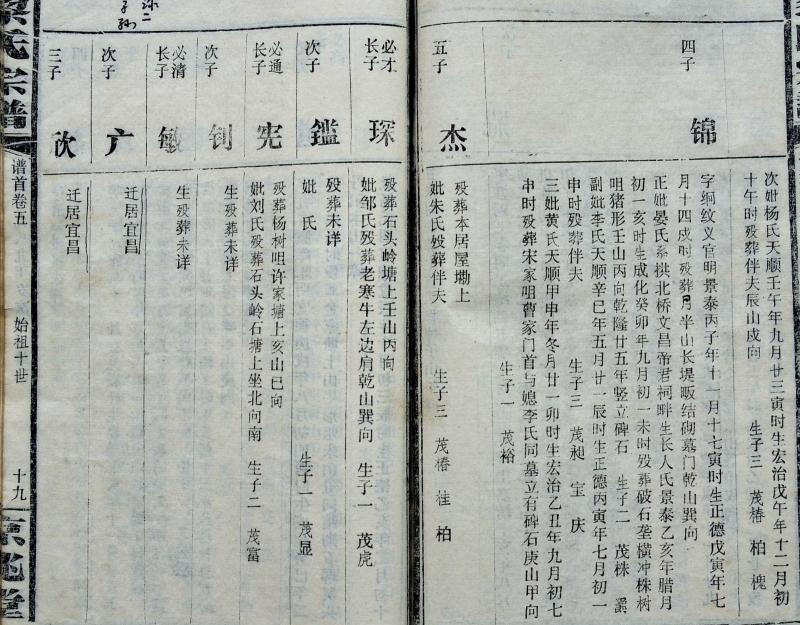 次妣杨氏天顺壬午年九月廿三寅时生宏治戊午年十二月初
十午时殁葬伴夫辰山戍向 生子三 茂椿 柏 槐
四子 锦
字纲纹义官明景泰丙子年十一月十七寅时生正德戊寅年七
月十四戍时殁葬月半山长堤畈结砌墓门乾山巽向
正妣晏氏系拱北桥文昌帝君祠畔生长人氏景泰乙亥年腊月
初一亥时生成化癸卯年九月初一未时殁葬破石垄横冲株树
咀猪形壬山丙向乾隆廿五年竖立碑石 生子二 茂株
副妣李氏天顺辛巳年五月廿一辰时生正德丙寅年七月初一
申时殁葬伴夫 生子三 茂昶 宝 庆
三妣黄氏天顺甲申年冬月廿一卯时生宏治乙丑年九月初七
申时殁葬宋家咀曹家门首与媳李氏同墓立有碑石庚山甲向
生子一 茂裕
五子 杰
殁葬本居屋墈上
妣朱氏殁葬伴夫 生子三 茂椿 桂 柏
必才长子 琛
殁葬石头岭塘上壬山丙向
妣邹氏殁葬老寒牛左边肩乾山巽向 生子一 茂虎
次子 鑑
殁葬未详
妣 氏 生子一 茂显
必通长子 宪
殁葬杨树咀许家塘上亥山巳向
妣刘氏殁葬石头岭石塘上坐北向南 生子二 茂富
次子 钊
生殁葬未详
必清长子 敏
生殁葬未详
次子 广
迁居宜昌
三子 欣
迁居宜昌
氏宗谱
谱首卷五
始祖十世
十九
堂